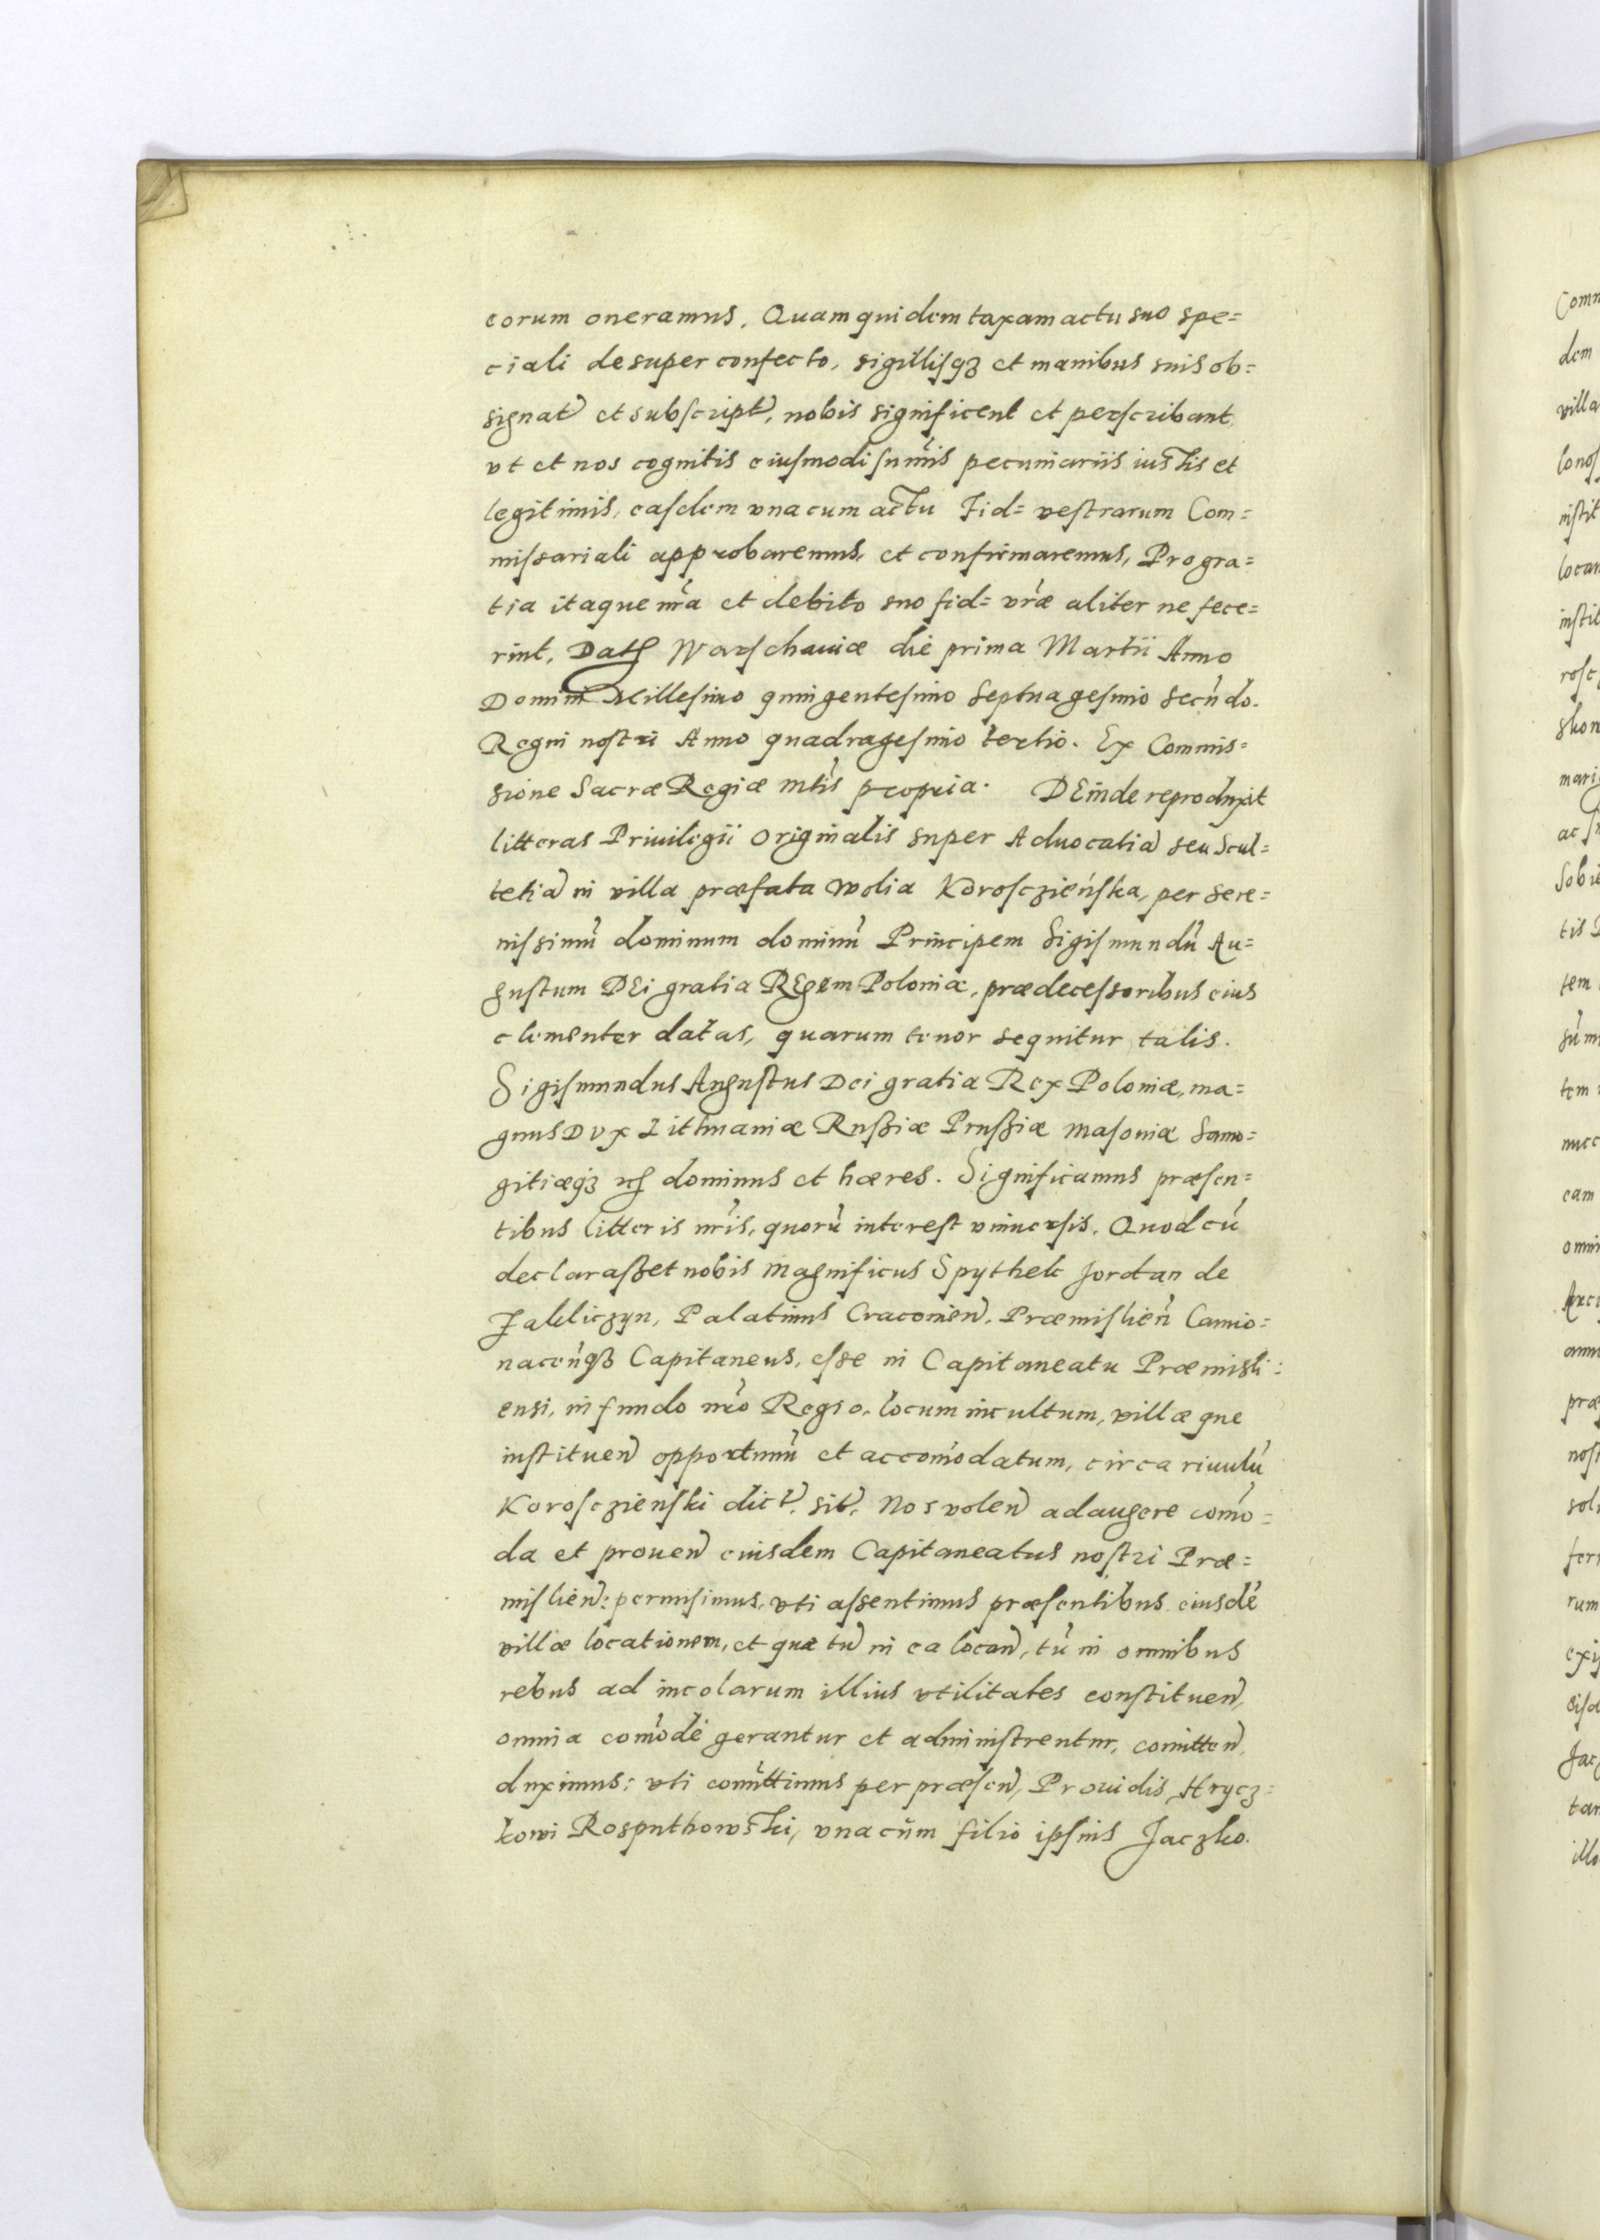 eorum oneramus. Quam quidem taxam actu suo spe=
ciali desuper confecto, sigillisqꝫ et manibus suis ob=
signat̃ et subscript̃, nobis significent et perscribant,
vt et nos cognitis eiusmodi sum̃is pecuniariis iustis et
legitimis, easdem vna cum actu Fid= vestrarum Com=
missariali approbaremus, et confirmaremus, Pro gra=
tia itaque nr̃a et debito suo fid= vr̃æ aliter ne fece=
rint, Datꝭ Warschauiæ die prima Martii Anno
Domini Millesimo quingentesimo Septuagesimo secũdo.
Regni nostri Anno quadragesimo tertio. Ex Commis=
sione Sacræ Regiæ mt̃is propria. DEinde reproduxit
litteras Priuilegii originalis super Aduocatiã seu Scul=
tetiã in villa præfata Wolia Korosczieńska, per Sere=
nissimũ dominum dominũ Principem Sigismundũ Au=
gustum DEi gratia REgem Poloniæ, prædecessoribus eius
clementer datas, quarum tenor sequitur talis.
Sigismundus Augustus Dei gratia Rex Poloniæ, ma=
gnus Dvx Lithuaniæ Russiæ Prussiæ Masouiæ Samo=
gitiæqꝫ ⁊cꝭ dominus et hæres. Significamus præsen=
tibus litteris nr̃is, quorũ interest vniuersis. Quod cũ
declarasset nobis Magnificus Spythek Jordan de
Zakliczyn, Palatinus Cracouień, Præmislień Camio=
naceńqꝫ Capitaneus, esse in Capitaneatu Præmisli=
ensi, in fundo nr̃o Regio, locum incultum, villæque
instituen̄ opportunũ et accom̃odatum, circa riuulũ
Korosczienski dict̃, sit̃, Nos volen̄ adaugere com̃o=
da et prouen̄ eiusdem Capitaneatus nostri Præ=
mislien̄: permisimus, vti assentimus præsentibus eiusdẽ
villæ locationem, et quæ tũ in ea locan̄, tũ in omnibus
rebus ad incolarum illius vtilitates constituen̄,
omnia com̃ode gerantur et administrentur, com̃itten̄
duximus: vti com̃ittimus per præsen̄, Prouidis Hrycz=
kowi Rosputhowski, vna cũm filio ipsius Jaczko.